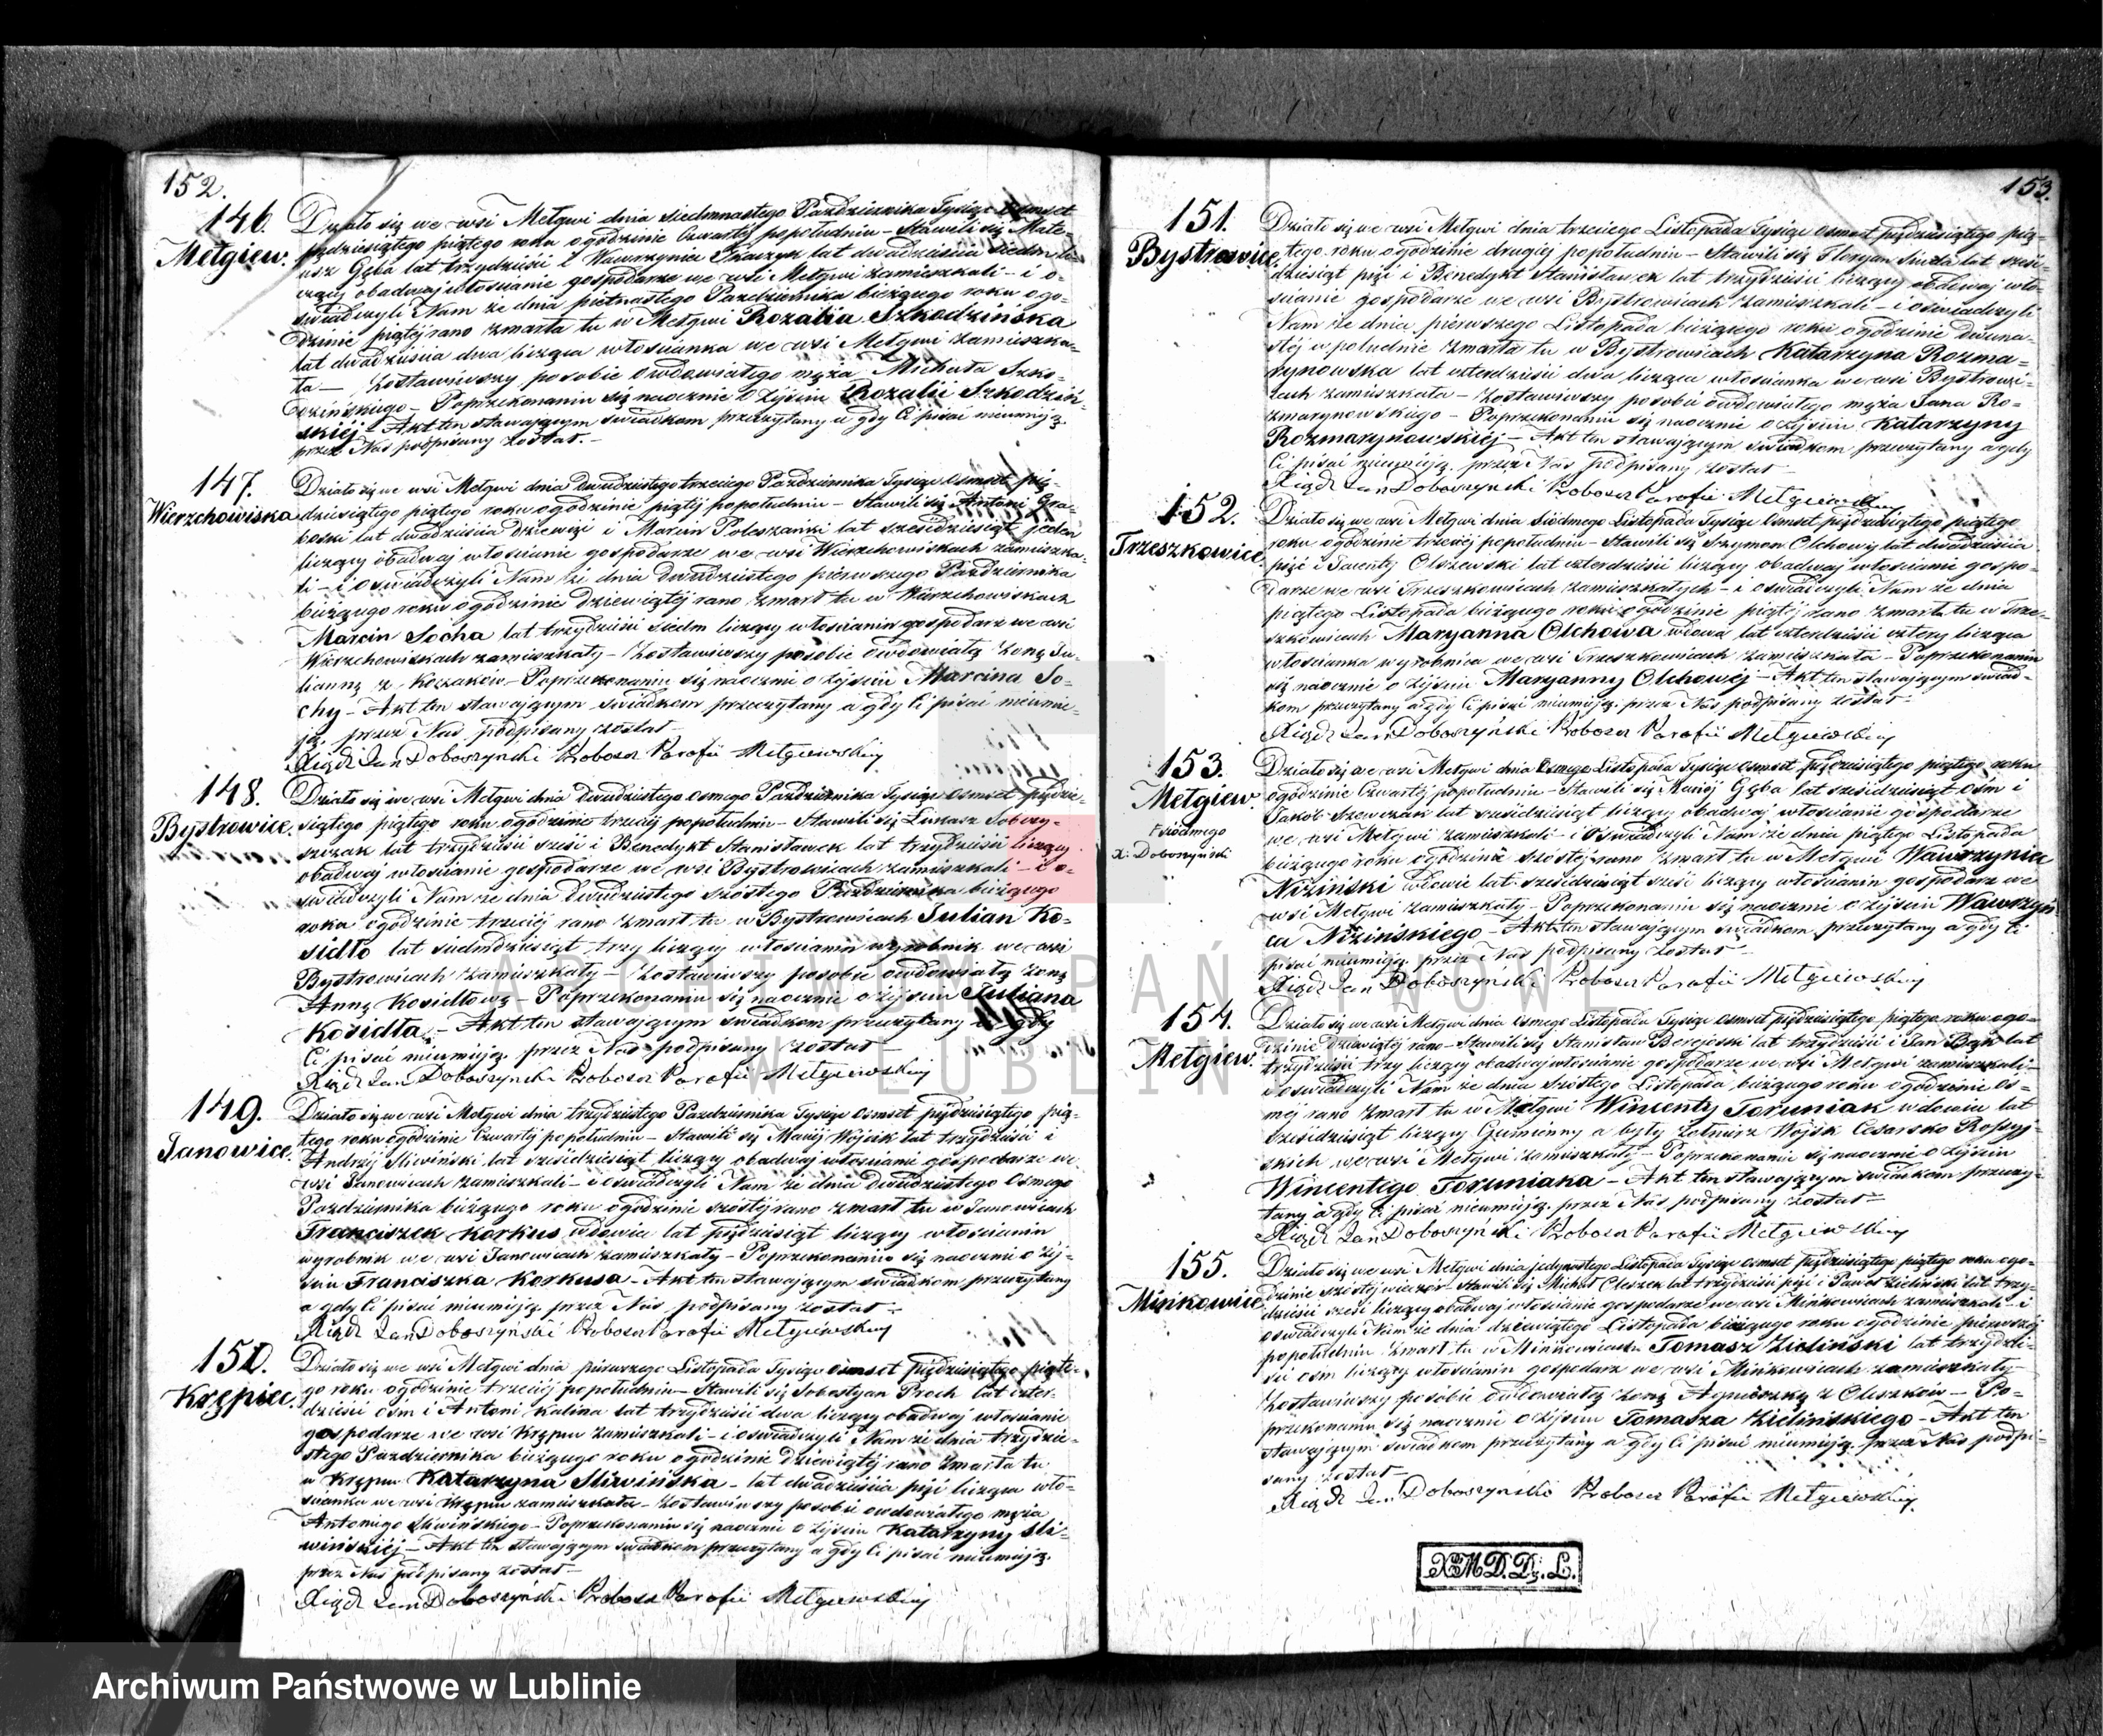 152.
146.
Mełgiew.
Działo się we wsi Mełgwi dnia siedmnastego Października Tysiąc Osmset
pędziesiątego piątego roku o godzinie Czwartéj popołudniu – Stawili się Mate-
usz Gęba lat trzydzieści i Wawrzyniec Tkaczyk lat dwadzieścia siedm li-
czący obadwaj włościanie gospodarze we wsi Mełgwi zamieszkali – i o-
świadczyli Nam że dnia piętnastego Października bieżącego roku o go-
dzinie piątéj rano zmarła tu w Mełgwi Rozalia Szkodzińska
lat dwadzieścia dwa licząca włościanka we wsi Mełgwi zamieszka-
ła – Zostawiwszy po sobie owdowiałego męża Michała Szko-
dzińskiego – Poprzekonaniu się naocznie o Zejściu Rozalii Szkodziń-
skiéj – Akt ten stawającym świadkom przeczytany a gdy Ci pisać nieumieją
przez Nas podpisany został. –
147.
Wierzchowiska
Działo się we wsi Mełgwi dnia Dwudziestego trzeciego Października Tysiąc Osmset pię-
dziesiątego piątego roku o godzinie piątéj popołudniu – Stawili się Antoni Gra-
boski lat dwadzieścia dziewięć i Marcin Poleszański lat sześćdziesiąt jeden
liczący obadwaj włościanie gospodarze we wsi Wierzchowiskach zamieszka-
li – i Oświadczyli Nam że dnia Dwudziestego pierwszego Października
bieżącego roku o godzinie dziewiątéj rano zmarł tu w Wierzchowiskach
Marcin Socha lat trzydzieści siedm liczący włościanin gospodarz we wsi
Wierzchowiskach zamieszkały – Zostawiwszy posobie Owdowiałą Żonę Ju-
liannę z Kozaków – Poprzekonaniu się naocznie o Zejściu Marcina So-
chy – Akt ten stawającym świadkom przeczytany a gdy Ci pisać nieumie-
ją przez Nas podpisany został –
Xiądz Jan Doboszyński Proboscz Parafii Mełgiewskiey
148.
Bystrowice.
Działo się we wsi Mełgwi dnia Dwudziestego Osmego Października Tysiąc Osmset piędzie-
siątego piątego roku o godzinie trzeciéj popołudniu – Stawili się Łukasz Sobczy-
szczak lat trzydzieści sześć i Benedykt Stanisławek lat trzydzieści liczący
obadwaj włościanie gospodarze we wsi Bystrowicach zamieszkali – i o-
świadczyli Nam że dnia Dwudziestego szóstego Października bieżącego
roku o godzinie trzeciéj rano zmarł tu w Bystrowicach Julian Ko-
sidło lat siedmdziesiąt trzy liczący włościanin wyrobnik we wsi
Bystrowicach zamieszkały – Zostawiwszy posobie owdowiałą żonę
Annę Kosidłową – Poprzekonaniu się naocznie o zejściu Juliana
Kosidła. – Akt ten stawającym świadkom przeczytany a gdy
Ci pisać nieumieją przez Nas podpisany został –
Xiądz Jan Doboszyński Proboscz Parafii Mełgiewskiey
149.
Janowice.
Działo się we wsi Mełgwi dnia trzydziestego Października Tysiąc Osmset piędziesiątego pią-
tego roku o godzinie Czwartéj popołudniu – Stawili się Maciéj Wójcik lat trzydzieści i
Andrzéj Śliwiński lat sześćdziesiąt liczący obadwaj włościanie gospodarze we
wsi Janowicach zamieszkali – i oświadczyli Nam że dnia Dwudziestego Osmego
Października bieżącego roku o godzinie szóstéj rano zmarł tu w Janowicach
Franciszek Korkus wdowiec lat piędziesiąt liczący włościanin
wyrobnik we wsi Janowicach zamieszkały – Poprzekonaniu się naocznie o Zej-
ściu Franciszka Korkusa – Akt ten stawającym świadkom przeczytany
a gdy Ci pisać nieumieją przez Nas podpisany został –
Xiądz Jan Doboszyński Proboscz Parafii Mełgiewskiey
150.
Krępiec.
Działo się we wsi Mełgwi dnia pierwszego Listopada Tysiąc Osmset piędziesiątego piąte-
go roku o godzinie trzeciéj popołudniu – Stawili się Sobestyan Proch lat czter-
dzieści ośm i Antoni Kalina lat trzydzieści dwa liczący obadwaj włościanie
gospodarze we wsi Krępcu zamieszkali – i oświadczyli Nam że dnia trzydzie-
stego Października bieżącego roku o godzinie dziewiątéj rano zmarła tu
w Krępcu Katarzyna Śliwińska – lat dwadzieścia pięć licząca wło-
ścianka we wsi Krępcu zamieszkała – Zostawiwszy posobie owdowiałego męża
Antoniego Śliwińskiego – Poprzekonaniu się naocznie o Zejściu Katarzyny Śli-
wińskiéj – Akt ten stawającym świadkom przeczytany a gdy Ci pisać nieumieją
przez Nas podpisany został –
Xiądz Jan Doboszyński Proboscz Parafii Mełgiewskiey
153.
151.
Bystrowice.
Działo się we wsi Mełgwi dnia trzeciego Listopada Tysiąc Osmset piędziesiątego pią-
tego roku o godzinie drugiéj popołudniu – Stawili się Floryan Siuda lat sześć-
dziesiąt pięć i Benedykt Stanisławek lat trzydzieści liczący obadwaj wło-
ścianie gospodarze we wsi Bystrowicach zamieszkali – i oświadczyli
Nam że dnia pierwszego Listopada bieżącego roku o godzinie dwuna-
stéj w południe zmarła tu w Bystrowicach Katarzyna Rozma-
rynowska lat czterdzieści dwa licząca włościanka we wsi Bystrowi-
cach zamieszkała – Zostawiwszy posobie owdowiałego męża Jana Ro-
zmarynowskiego – Poprzekonaniu się naocznie o Zejściu Katarzyny
Rozmarynowskiéj – Akt ten stawającym świadkom przeczytany a gdy
Ci pisać nieumieją przez Nas podpisany został –
Xiądz Jan Doboszyński Proboscz Parafii Mełgiewskiey
152.
Trzeszkowice.
Działo się we wsi Mełgwi dnia Siódmego Listopada Tysiąc Osmset piędziesiątego piątego
roku o godzinie trzeciéj popołudniu – Stawili się Szymon Olchowy lat dwadzieścia
pięć i Walenty Olszewski lat czterdzieści liczący obadwaj włościanie gospo-
darze we wsi Trzeszkowicach zamieszkałych – i oświadczyli Nam że dnia
piątego Listopada bieżącego roku o godzinie piątéj rano zmarła tu w Trze-
szkowicach Maryanna Olchowa wdowa lat czterdzieści cztery licząca
włościanka wyrobnica we wsi Trzeszkowicach zamieszkała – Poprzekonaniu
się naocznie o Zejściu Maryanny Olchowéj – Akt ten stawającym świad-
kom przeczytany a gdy Ci pisać nieumieją przez Nas podpisany został –
Xiądz Jan Doboszyński Proboscz Parafii Mełgiewskiey
153.
Mełgiew.
siódmego
x. Doboszyński
Działo się we wsi Mełgwi dnia Osmego Listopada Tysiąc Osmset piędziesiątego piątego roku
o godzinie Czwartéj popołudniu – Stawili się Maciéj Gęba lat sześćdziesiąt Ośm i
Jakób Szewczak lat sześćdziesiąt liczący obadwaj włościanie gospodarze
we wsi Mełgwi zamieszkali – i oświadczyli Nam że dnia piątego Listopada
bieżącego roku o godzinie szóstéj rano zmarł tu w Mełgwi Wawrzyniec
Niziński wdowiec lat sześćdziesiąt sześć liczący włościanin gospodarz we
wsi Mełgwi zamieszkały – Poprzekonaniu się naocznie o Zejściu Wawrzyń-
ca Nizińskiego – Akt ten stawającym świadkom przeczytany a gdy Ci
pisać nieumieją przez Nas podpisany został –
Xiądz Jan Doboszyński Proboscz Parafii Mełgiewskiey
154.
Mełgiew.
Działo się we wsi Mełgwi dnia Osmego Listopada Tysiąc Osmset piędziesiątego piątego roku o go-
dzinie dziewiątéj rano – Stawili się Stanisław Berejoski lat trzydzieści i Jan Bąk lat
trzydzieści trzy liczący obadwaj włościanie gospodarze we wsi Mełgwi zamieszkali –
i oświadczyli Nam że dnia szóstego Listopada bieżącego roku o godzinie Os-
méj rano zmarł tu w Mełgwi Wincenty Toruniak wdowiec lat
sześćdziesiąt liczący Gumienny a były Żołnierz Wojsk Cesarsko Rossyj-
skich we wsi Mełgwi zamieszkały – Poprzekonaniu się naocznie o Zejściu
Wincentego Toruniana – Akt ten stawającym świadkom przeczy-
tany a gdy Ci pisać nieumieją przez Nas podpisany został –
Xiądz Jan Doboszyński Proboscz Parafii Mełgiewskiey
155.
Minkowice
Działo się we wsi Mełgwi dnia jedynastego Listopada Tysiąc Osmset piędziesiątego piątego roku o go-
dzinie szóstéj wieczór – Stawili się Michał Oleszek lat trzydzieści pięć i Paweł Zieliński lat trzy-
dzieści sześć liczący obadwaj włościanie gospodarze we wsi Minkowicach zamieszkali – i
oświadczyli Nam że dnia dziewiątego Listopada bieżącego roku o godzinie pierwszéj
popołudniu zmarł tu w Minkowicach Tomasz Zieliński lat trzydzie-
ści ośm liczący włościanin gospodarz we wsi Minkowicach zamieszkały –
Zostawiwszy posobie owdowiałą żonę Agnieszkę z Oleszków – Po-
przekonaniu się naocznie o Zejściu Tomasza Zielińskiego – Akt ten
stawającym świadkom przeczytany a gdy Ci pisać nieumieją przez Nas podpi-
sany został –
Xiądz Jan Doboszyński Proboscz Parafii Mełgiewskiey
X M D. Dz. L.
ARCHIWUM PAŃSTWOWE
W LUBLINIE
Archiwum Państwowe w Lublinie